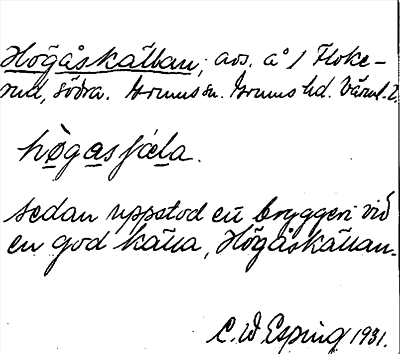 Högåskällan, avs. å 1 Floke-
rud, södra. Brunns sn. Brunns hd. Värml. l.
högasfæla.
sedan uppstod ett bryggeri vid
en god källa, Högåskällan.
C. W Esping 1931.